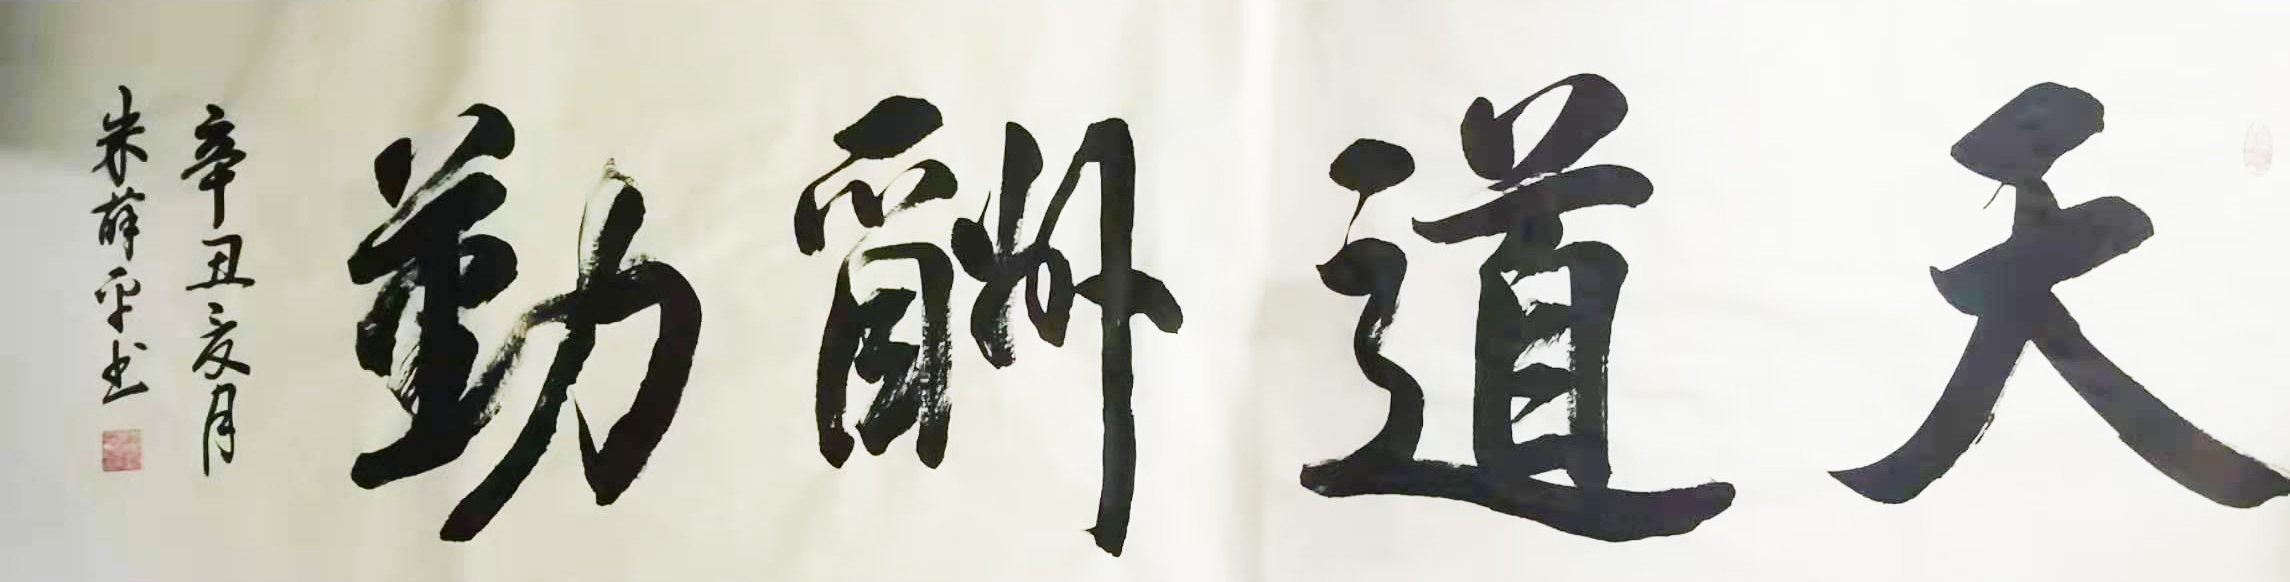 天道酬勤
辛丑亥月
朱薛平书